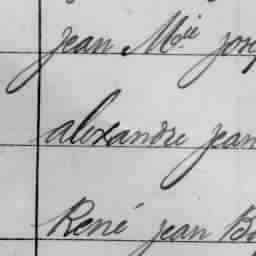 jean Mie jose
alexandre jean
René jean Ba